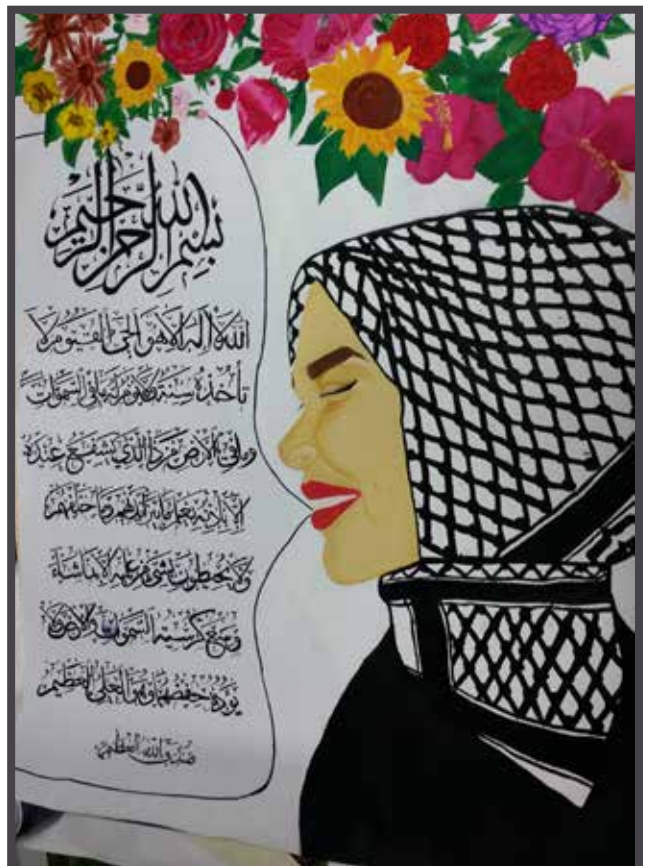 بسم الله الرحمن الرحيم
الله لا اله الا هو الحي القيوم لا
تأخذه سنة ولا نوم له ما في السموات
وما في الارض من ذا الذي يشفع عنده
إلا بإذنه يعلم ما بين أيديهم وما خلفهم
ولا يحيطون بشئ من علمه الا بما شاء
وسع كرسيه السموات والارض ولا
يؤده حفظهما وهو العلي العظيم
صدق الله العظيم